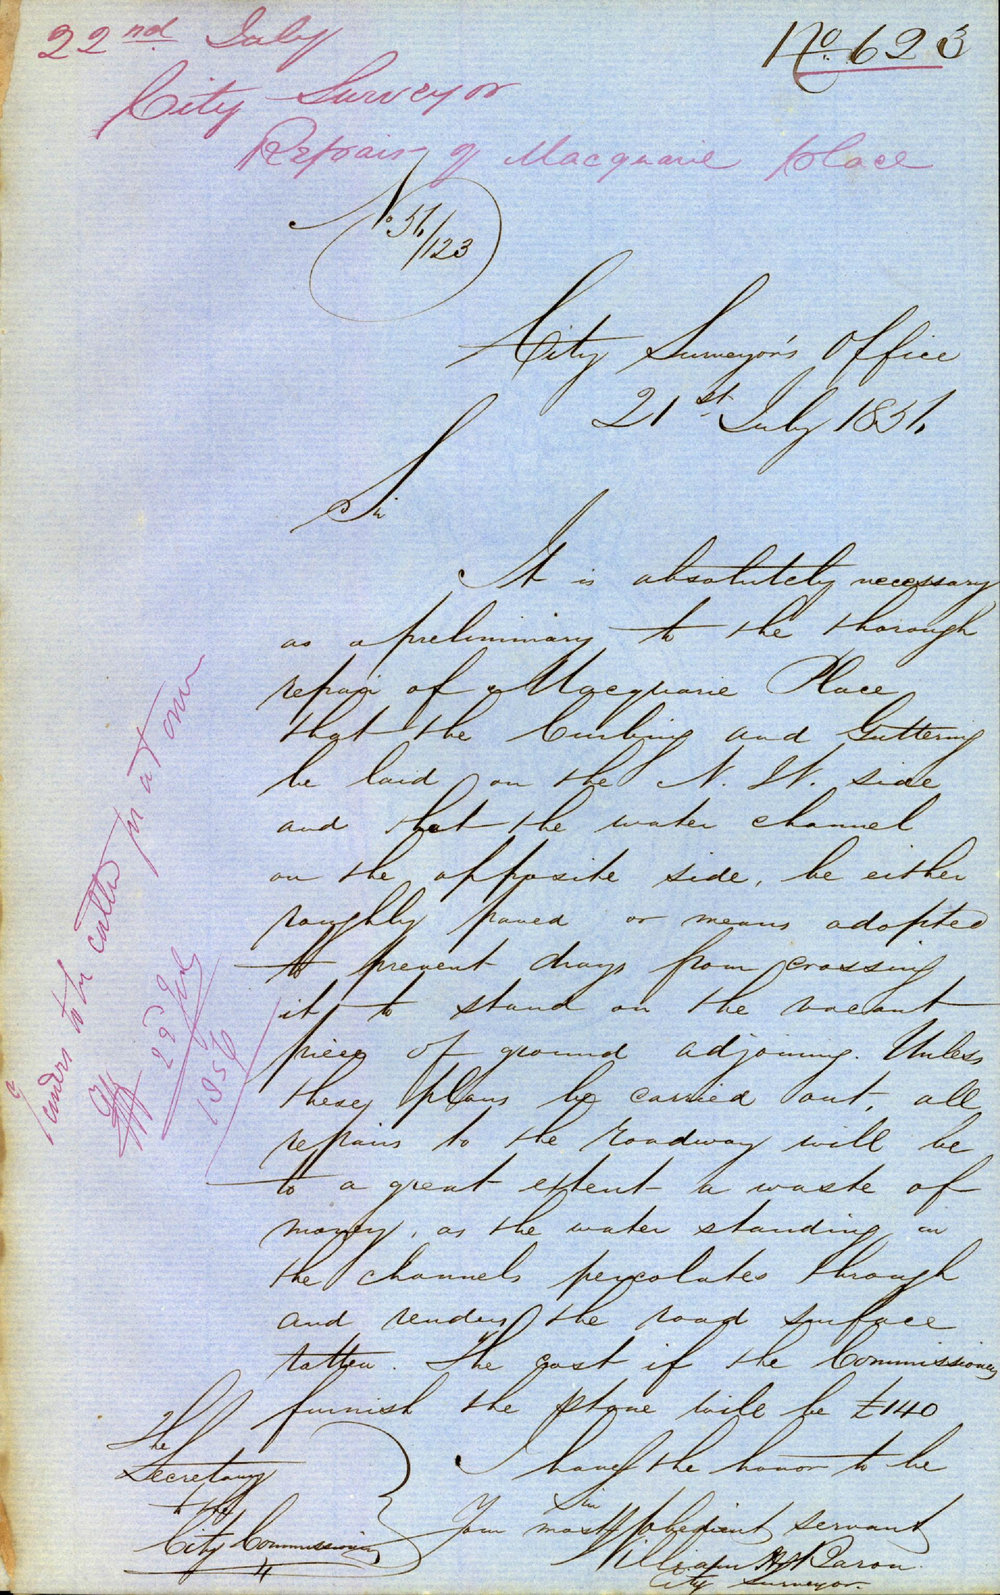 22nd July
No. 623
City Surveyor
Repairs of Macquarie Place
No. 56/123
City Surveyor's Office
21st July 1856.
Sir
It is absolutely necessary
as a preliminary to the thorough
repair of Macquarie Place
that the Curbing and Guttering
be laid on the N. W. side
and that the water channel
on the opposite side, be either
roughly paved or means adopted
to prevent drays from crossing
it to stand on the vacant
piece of ground adjoining. Unless
these plans be carried out, all
repairs to the roadway will be
to a great extent a waste of
money, as the water standing in
the channels percolates through
and renders the road surface
rotten. The cost if the Commissioners
furnish the stone will be £140
I have the honor to be
Sir
Your most obedient servant
William
City Surveyor.
The
Secretary
to the
City Commissioners
Tenders to be called for at once
22d July
1856